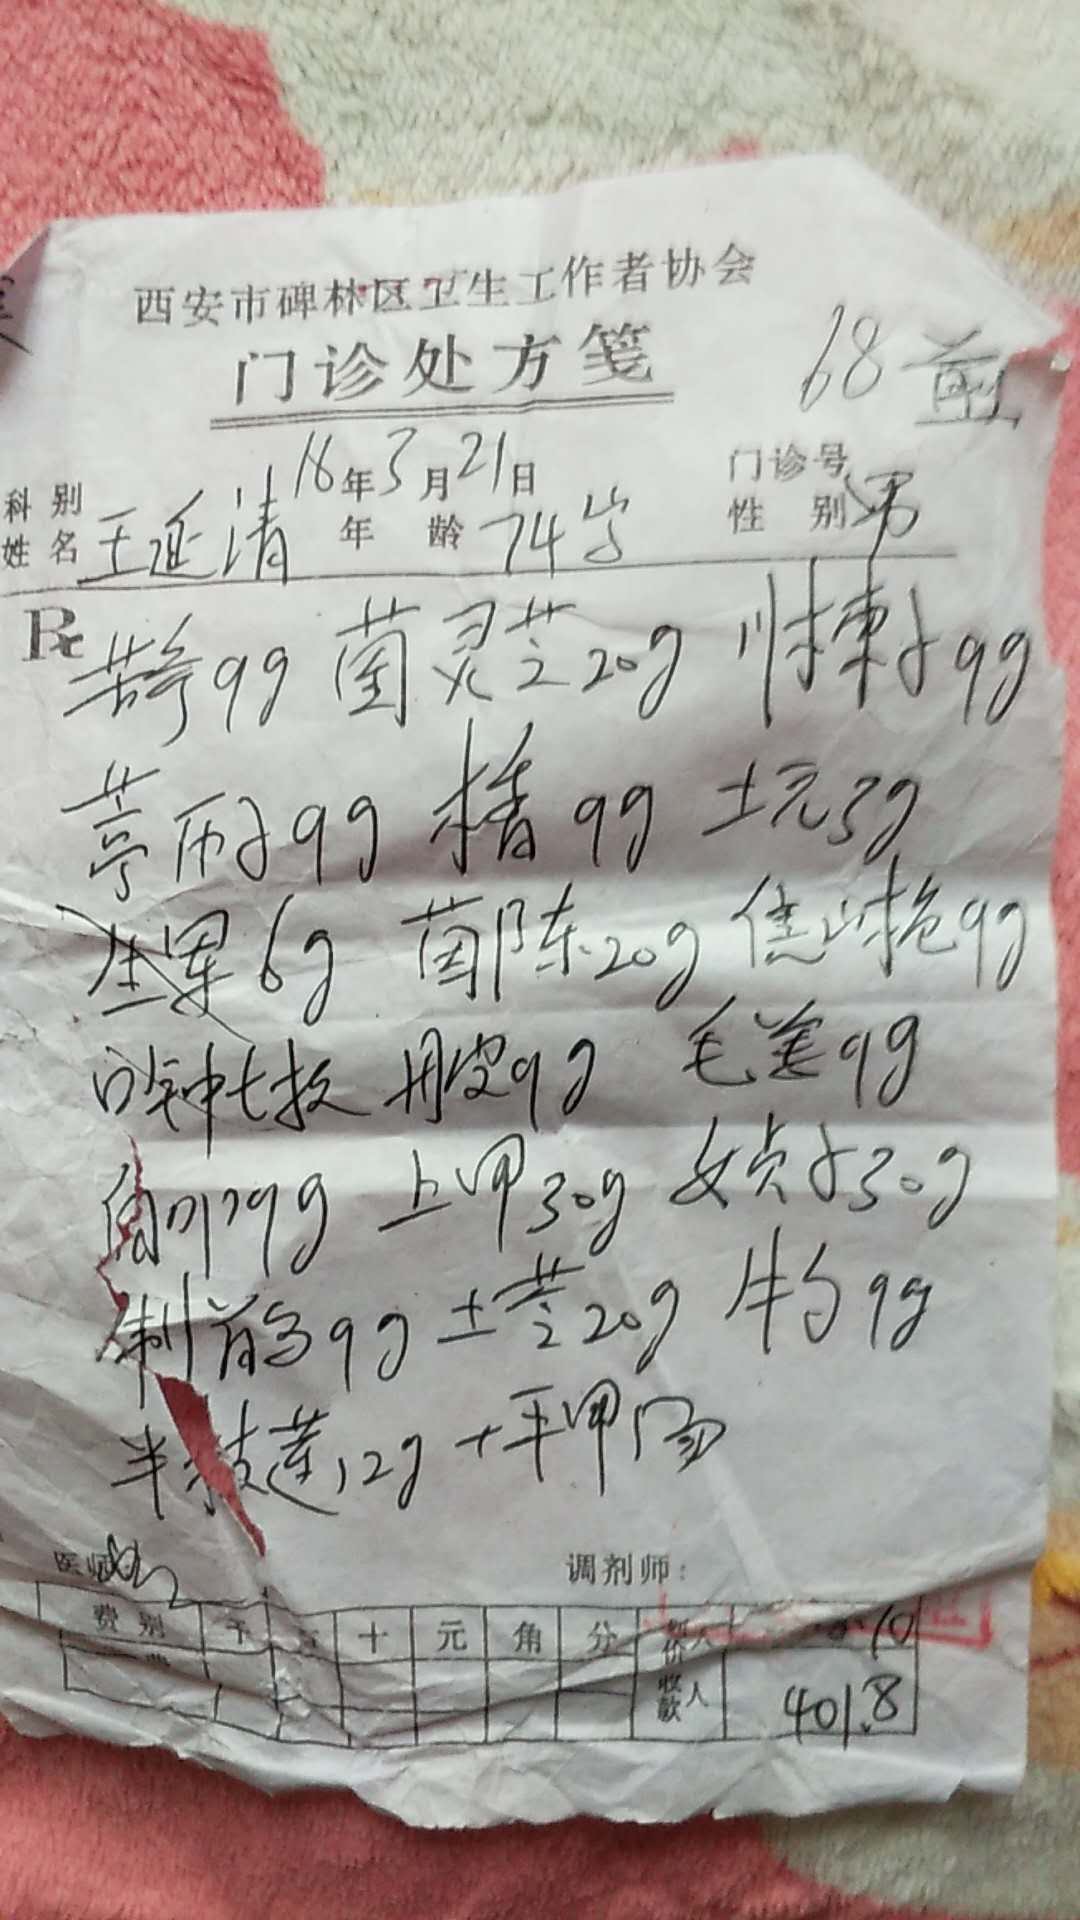 西安市碑林区卫生工作者协会
门诊处方笺
18年3月21日 门诊号
科别
姓名 王延清 年龄 74岁 性别 男
菌灵芝20g 川楝子9g
葶历子9g 9g 土元3g
6g 茵陈20g 焦山栀9g
七枚 丹皮9g 毛姜9g
9g 上甲30g 女贞子30g
制首乌9g 土苓20g 牛子9g
半枝莲12g + 平甲
医师 调剂师:
费别 千 百 十 元 角 分 划价人 10
收款人 401.8